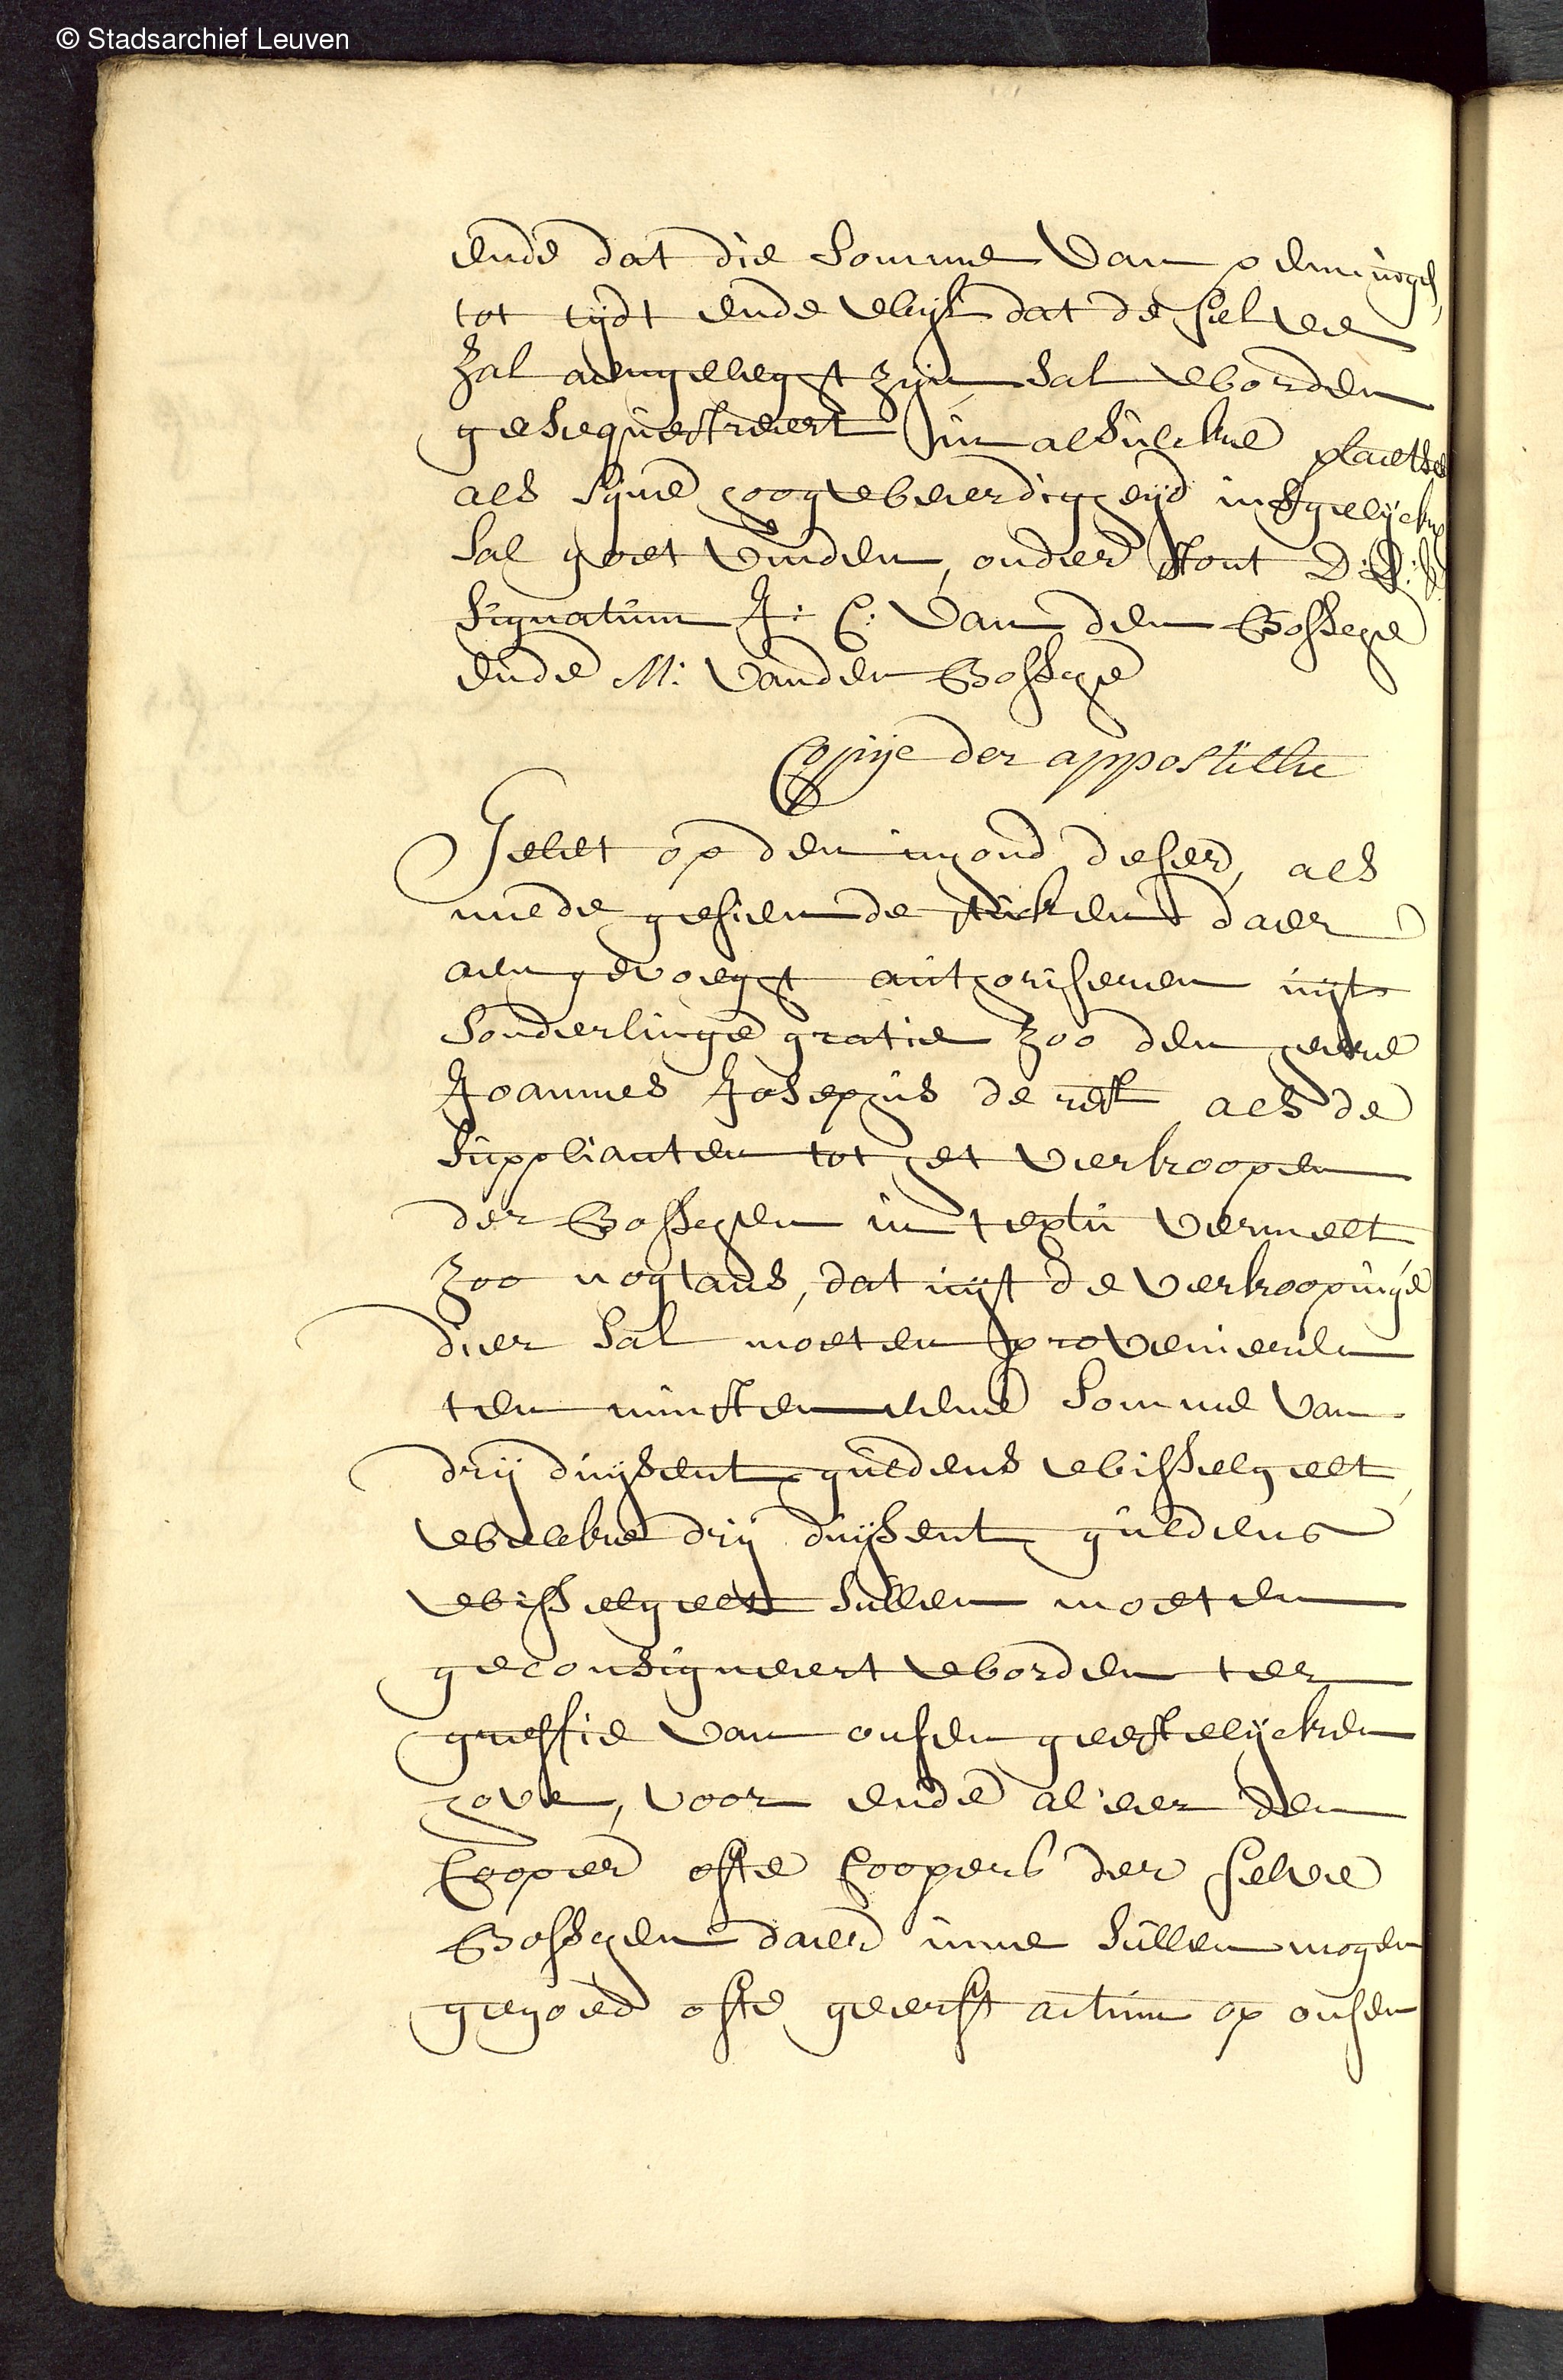 © Stadsarchief Leuven
ende dat die somme van penningh
tot tijdt ende wijl dat de selve
zal aengeleght zijn sal worden
gesequestreert in alsulcke plaetse
als syne hooghweerdigheijd insghelijckx
sal goet vinden, onder stont D: D:
Signatum J: C: van den Bossche
ende M: vanden Bossche
Copije der appostille
Gelet op den inhoud deser, als
mede gesien de stucken daer
aen gevoeght authoriseren uijt
sonderlinge gratie zoo den heere
Joannes Josephus de rest als de
supplianten tot het verkoopen
der Bosschen in textu vermelt
zoo noghtans, dat uijt de verkoopinge
dier sal moeten provenieren
ten minsten eene somme van
drij duijsent guldens wisselgelt,
welcke drij duijsent guldens
wisselgelt sullen moeten
geconsigneert worden ter
greffie van onsen geestelijcken
hove, voor ende al eer den
Cooper ofte Coopers der selve
Bosschen daer inne sullen mogen
gegoed ofte geerft actum op onsen